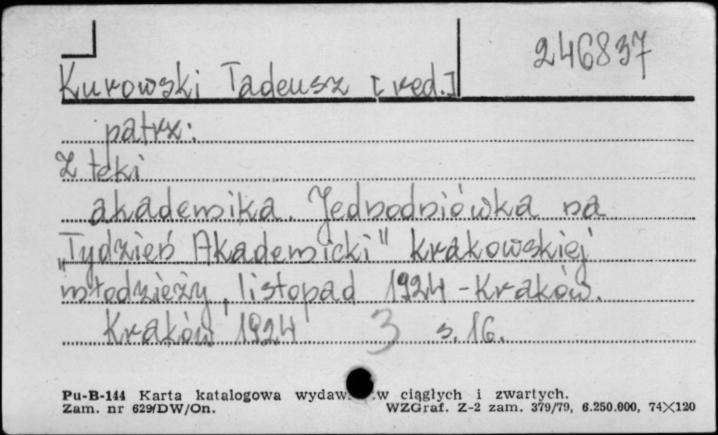 246837
Kurowski Tadeusz [red.]
patrz:
Z teki
akademika. Jednodniówka na
„Tydzień Akademicki" krakowskiej
młodzieży, listopad 1924 - Kraków.
Kraków 1924 3 s. 16.
Pu-B-144 Karta katalogowa wydaw. w ciągłych i zwartych.
Zam. nr 629/DW/On. WZGraf. Z-2 zam. 379/79, 6.250.000, 74×120